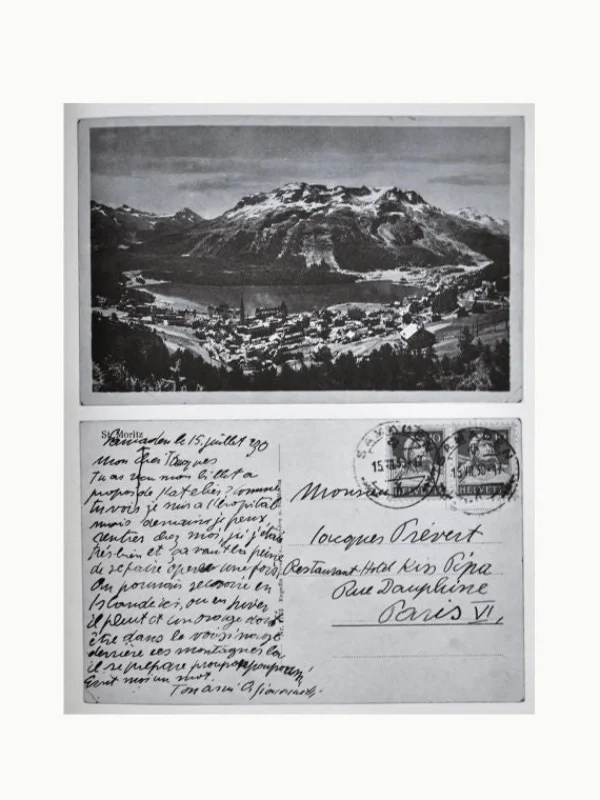 St. Moritz
Samaden le 15, juillet 30
Mon cher Jacques
Tu as reçu mon billet a
propos de l'atelier? Comme
tu vois je suis a l'hopital
mais demain je peux
rentrer chez moi, ici j'étais
très bien et ça vaut la peine
de se faire opérer une fois,
On pourrais se croire en
Islande ici, ou en hiver
il pleut et un orage doit
être dans le voisinage
derrière ces montagnes la
il se prépare
Ecrit moi un mot.
Ton ami A Giacometti
SAMADEN
15.VII.30
HELVETIA
SAMADEN
15.VII.30
HELVETIA
Monsieur
Jacques Prévert
Restaurant Hotel Kiss Pipa
Rue Dauphine
Paris VI,